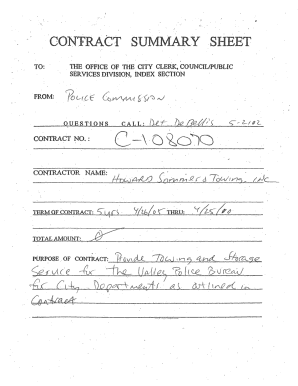 CONTRACT SUMMARY SHEET
TO: THE OFFICE OF THE CITY CLERK, COUNCIL/PUBLIC
SERVICES DIVISION, INDEX SECTION
FROM: Police Commission
QUESTIONS CALL: Det DeBellis 5-2102
CONTRACT NO.: C-108070
CONTRACTOR NAME:
Howard Sommers Towing, Inc
TERM OF CONTRACT: 5 yrs 4/26/05 THRU: 4/25/
TOTAL AMOUNT: 0
PURPOSE OF CONTRACT: Provide Towing and Storage
Service for the Valley Police Bureau
for City Departments as outlined in
Contract